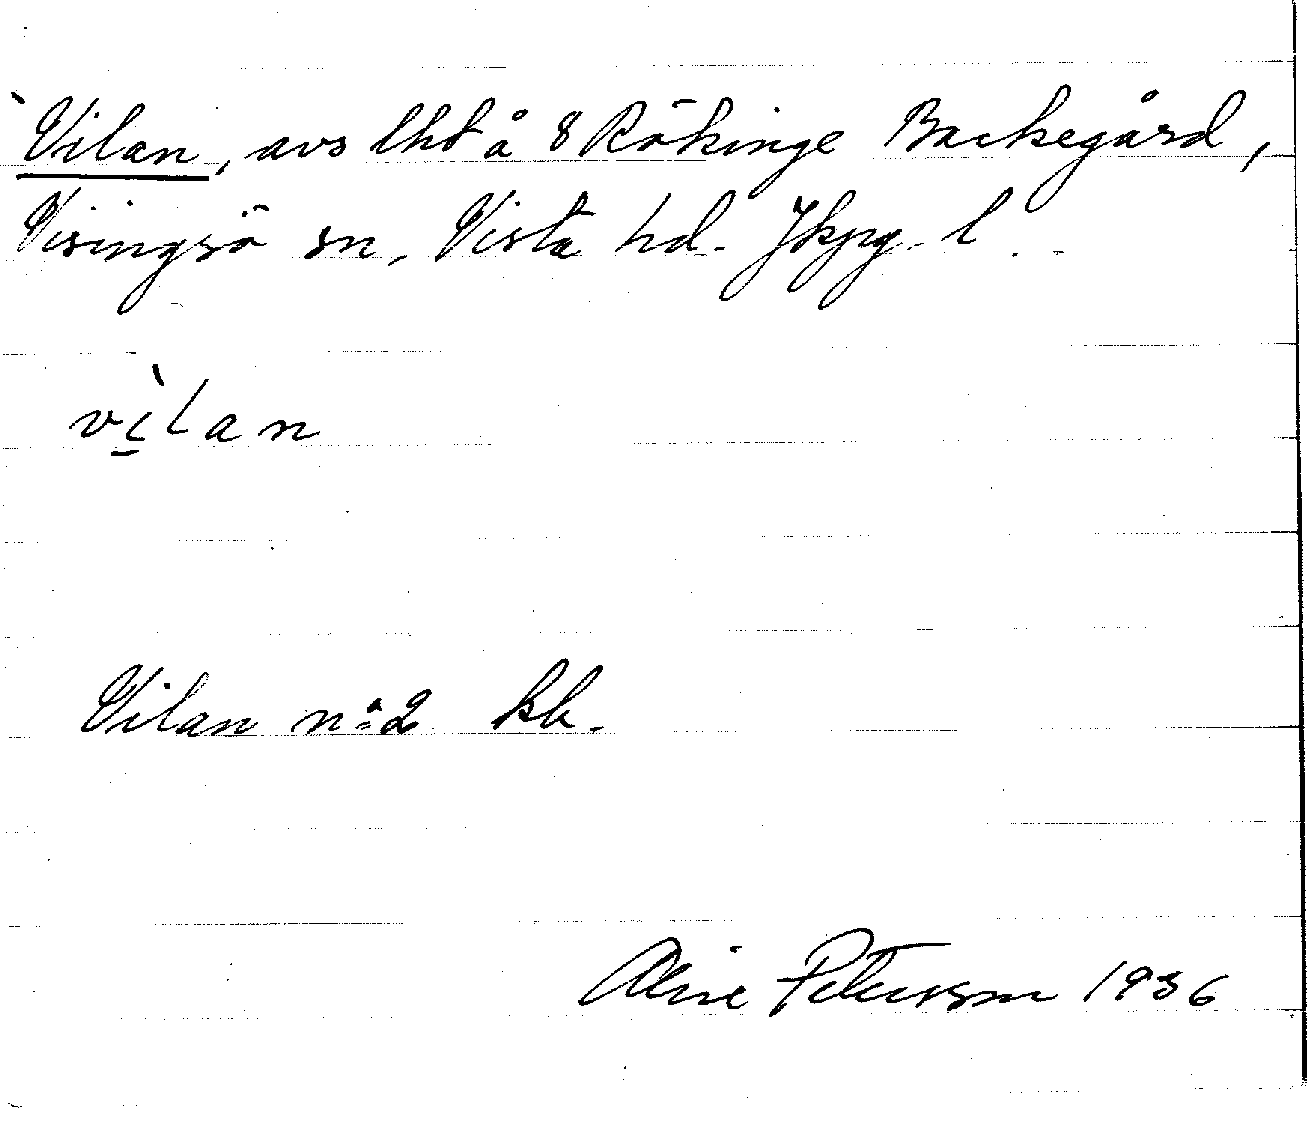 `Vilan, avs lht å 8 Rökinge Backegård,
Visingsö sn, Vista hd. Jkpg. l.
vì̱lan
Vilan n:2 kb.
Petersson 1936